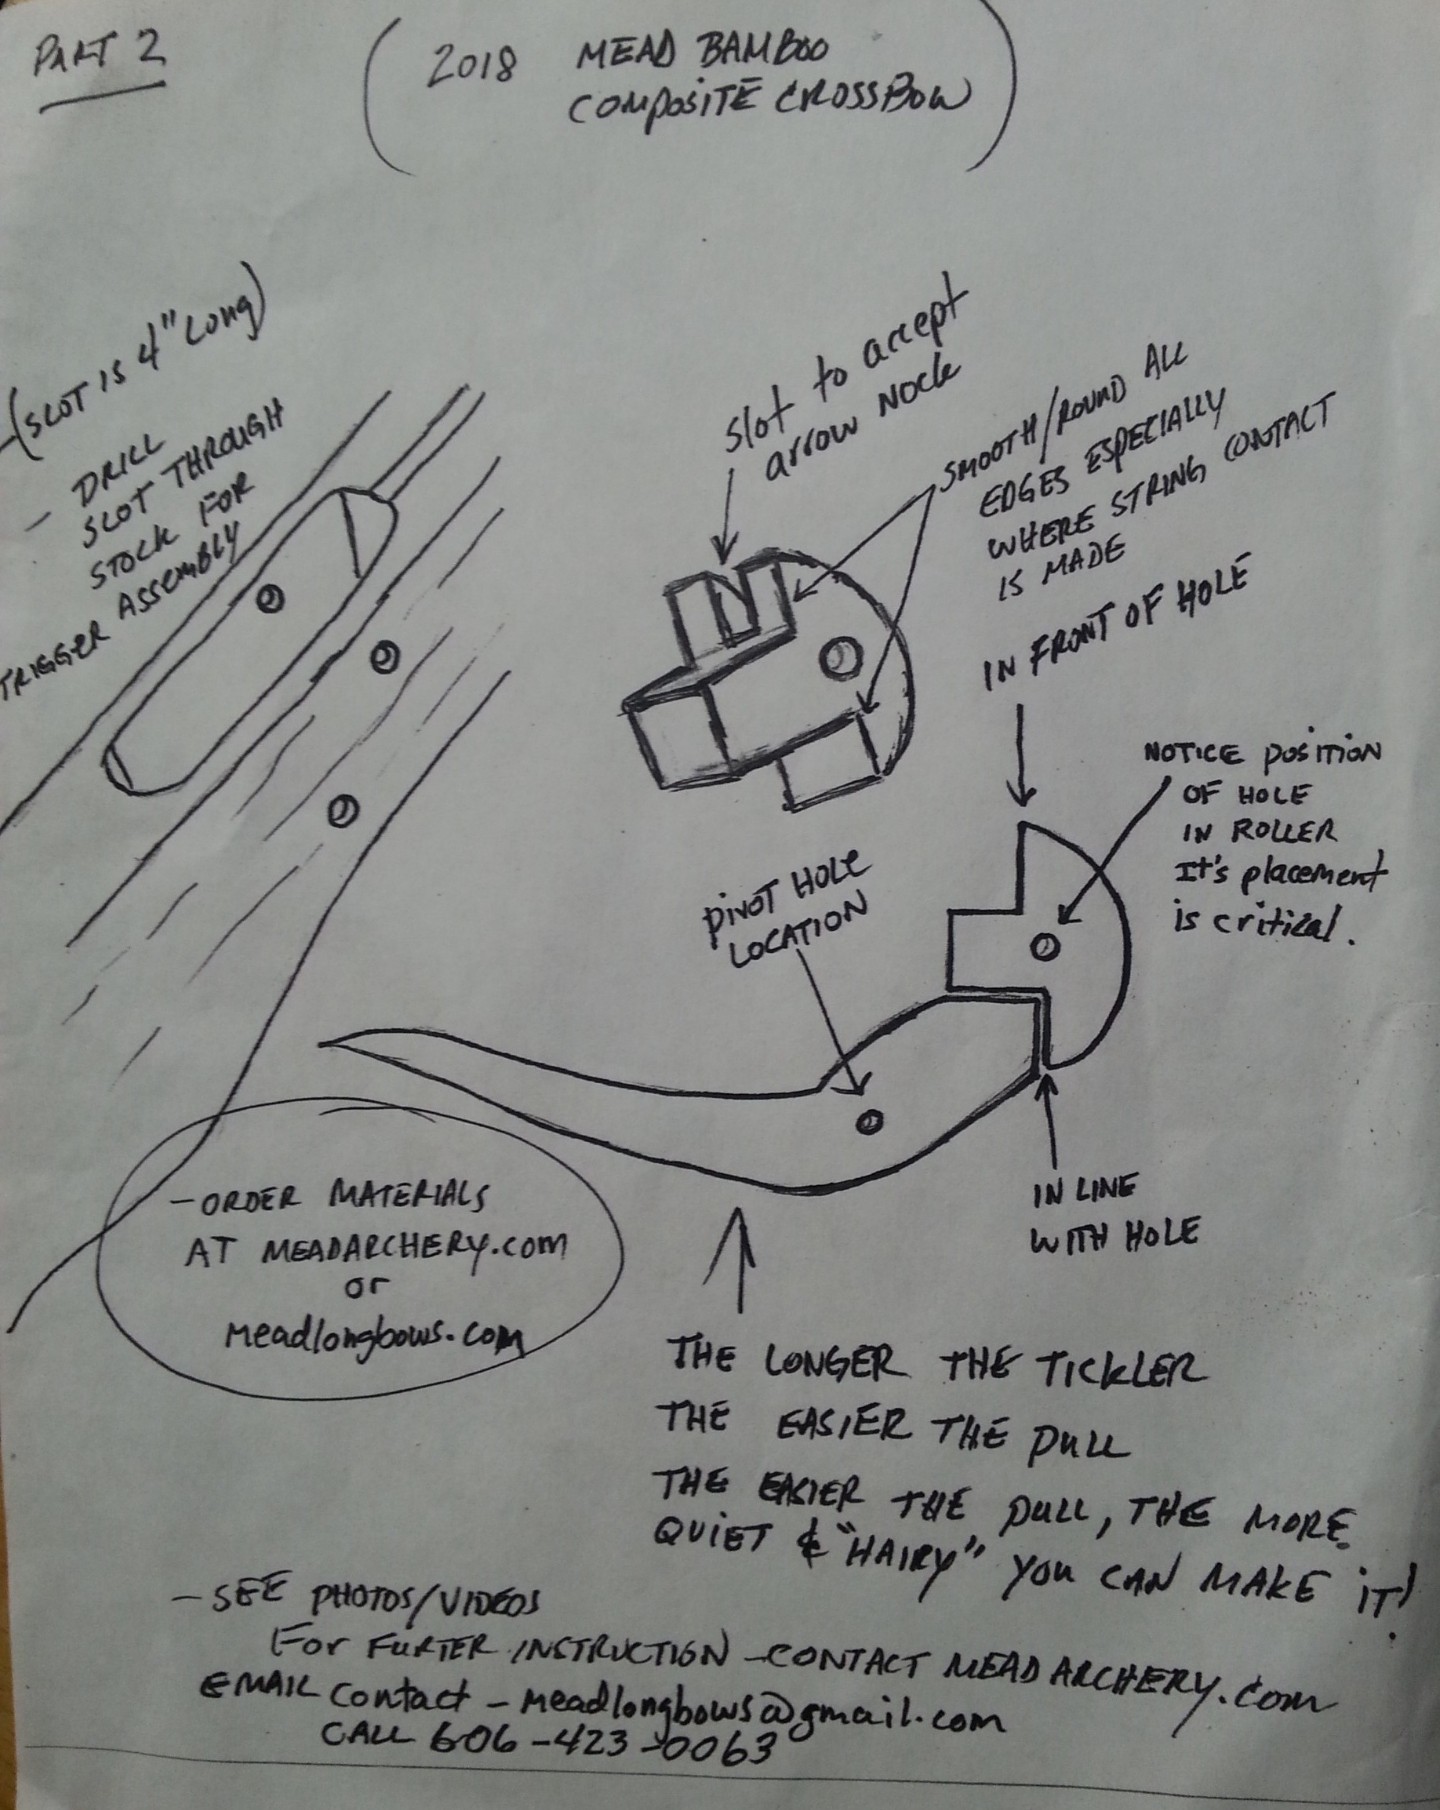 PART 2
(2018 MEAD BAMBOO
COMPOSITE CROSSBOW)
(SLOT IS 4" LONG)
- DRILL
SLOT THROUGH
STOCK FOR
TRIGGER ASSEMBLY
Slot to accept
arrow Nock
SMOOTH/ROUND ALL
EDGES ESPECIALLY
WHERE STRING CONTACT
IS MADE
IN FRONT OF HOLE
NOTICE POSITION
OF HOLE
IN ROLLER
It's placement
is critical.
PIVOT HOLE
LOCATION
IN LINE
WITH HOLE
-ORDER MATERIALS
AT MEADARCHERY.com
or
Meadlongbows.com
THE LONGER THE TICKLER
THE EASIER THE PULL
THE EASIER THE PULL, THE MORE
QUIET & "HAIRY" YOU CAN MAKE IT!
-SEE PHOTOS/VIDEOS
For FURTER INSTRUCTION -CONTACT MEADARCHERY.com
EMAIL contact - Meadlongbows@gmail.com
CALL 606-423-0063